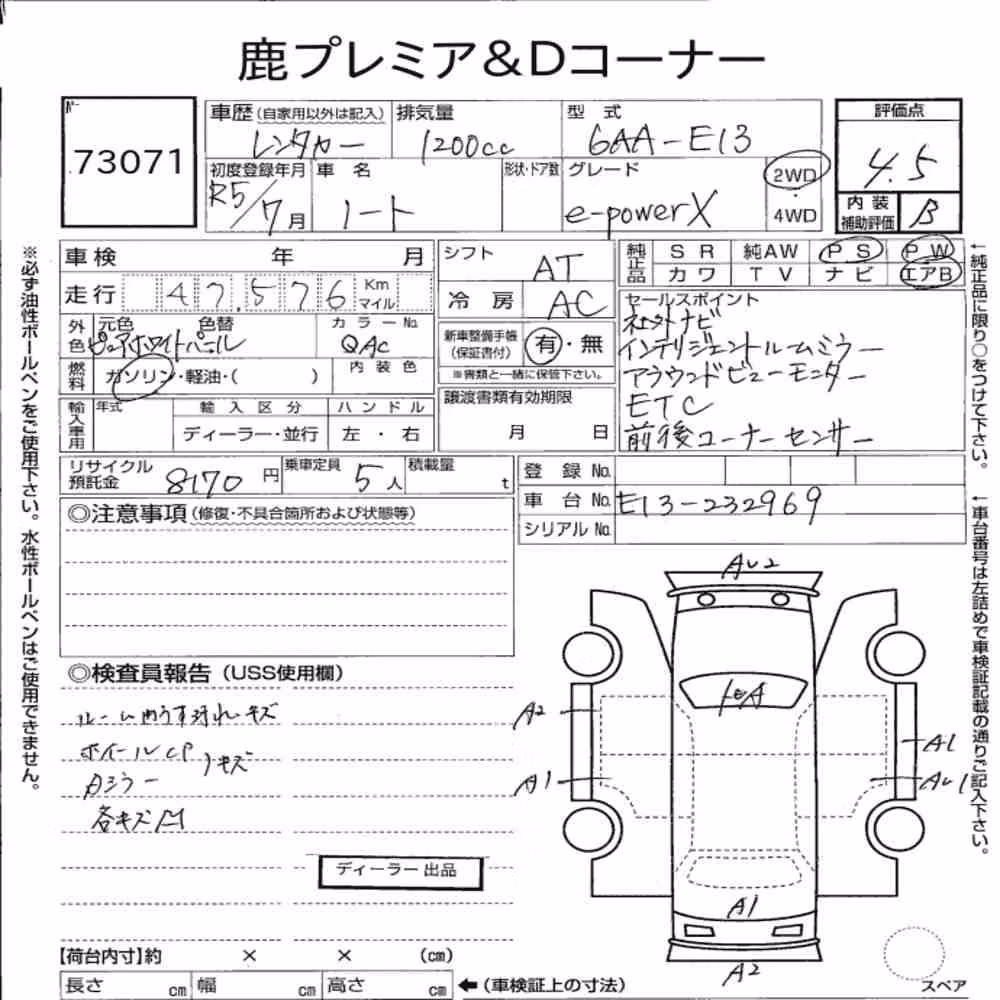 鹿プレミア&Dコーナー
73071
車歴(自家用以外は記入) 排気量 型式 評価点
レンタカー 1200cc 6AA-E13 4.5
初度登録年月 車名 形状・ドア数 グレード 2WD・4WD 内装補助評価 B
R5/7月 ノート e-powerX
車検 年 月
シフト AT
純正品 SR 純AW PS PW
カワ TV ナビ エアB
走行 47,576 Km マイル
冷房 AC
外色 元色 色替 カラーNo.
ピュアホワイトパール QAC
新車整備手帳(保証書付) 有・無
※書類と一緒に保管下さい。
セールスポイント
社外ナビ
インテリジェントルームミラー
アラウンドビューモニター
ETC
前後コーナーセンサー
燃料 ガソリン・軽油・( ) 内装色
輸入車用 年式 輸入区分 ハンドル
ディーラー・並行 左・右
譲渡書類有効期限
月 日
リサイクル預託金 8170円 乗車定員 5人 積載量 t
登録No.
車台No. E13-232969
シリアルNo.
◎注意事項(修復・不具合箇所および状態等)
◎検査員報告(USS使用欄)
ルーム内うす汚れキズ
ホイールCP
Aミラー
ノキズ
各キズ凹
ディーラー出品
【荷台内寸】約 × × (cm)
長さ cm 幅 cm 高さ cm
←(車検証上の寸法)
AU2
A2
A1
A1
AU1
A1
A2
スペア
※必ず油性ボールペンをご使用下さい。水性ボールペンはご使用できません。
←純正品に限り○をつけて下さい。
←車台番号は左詰めで車検証記載の通りご記入下さい。